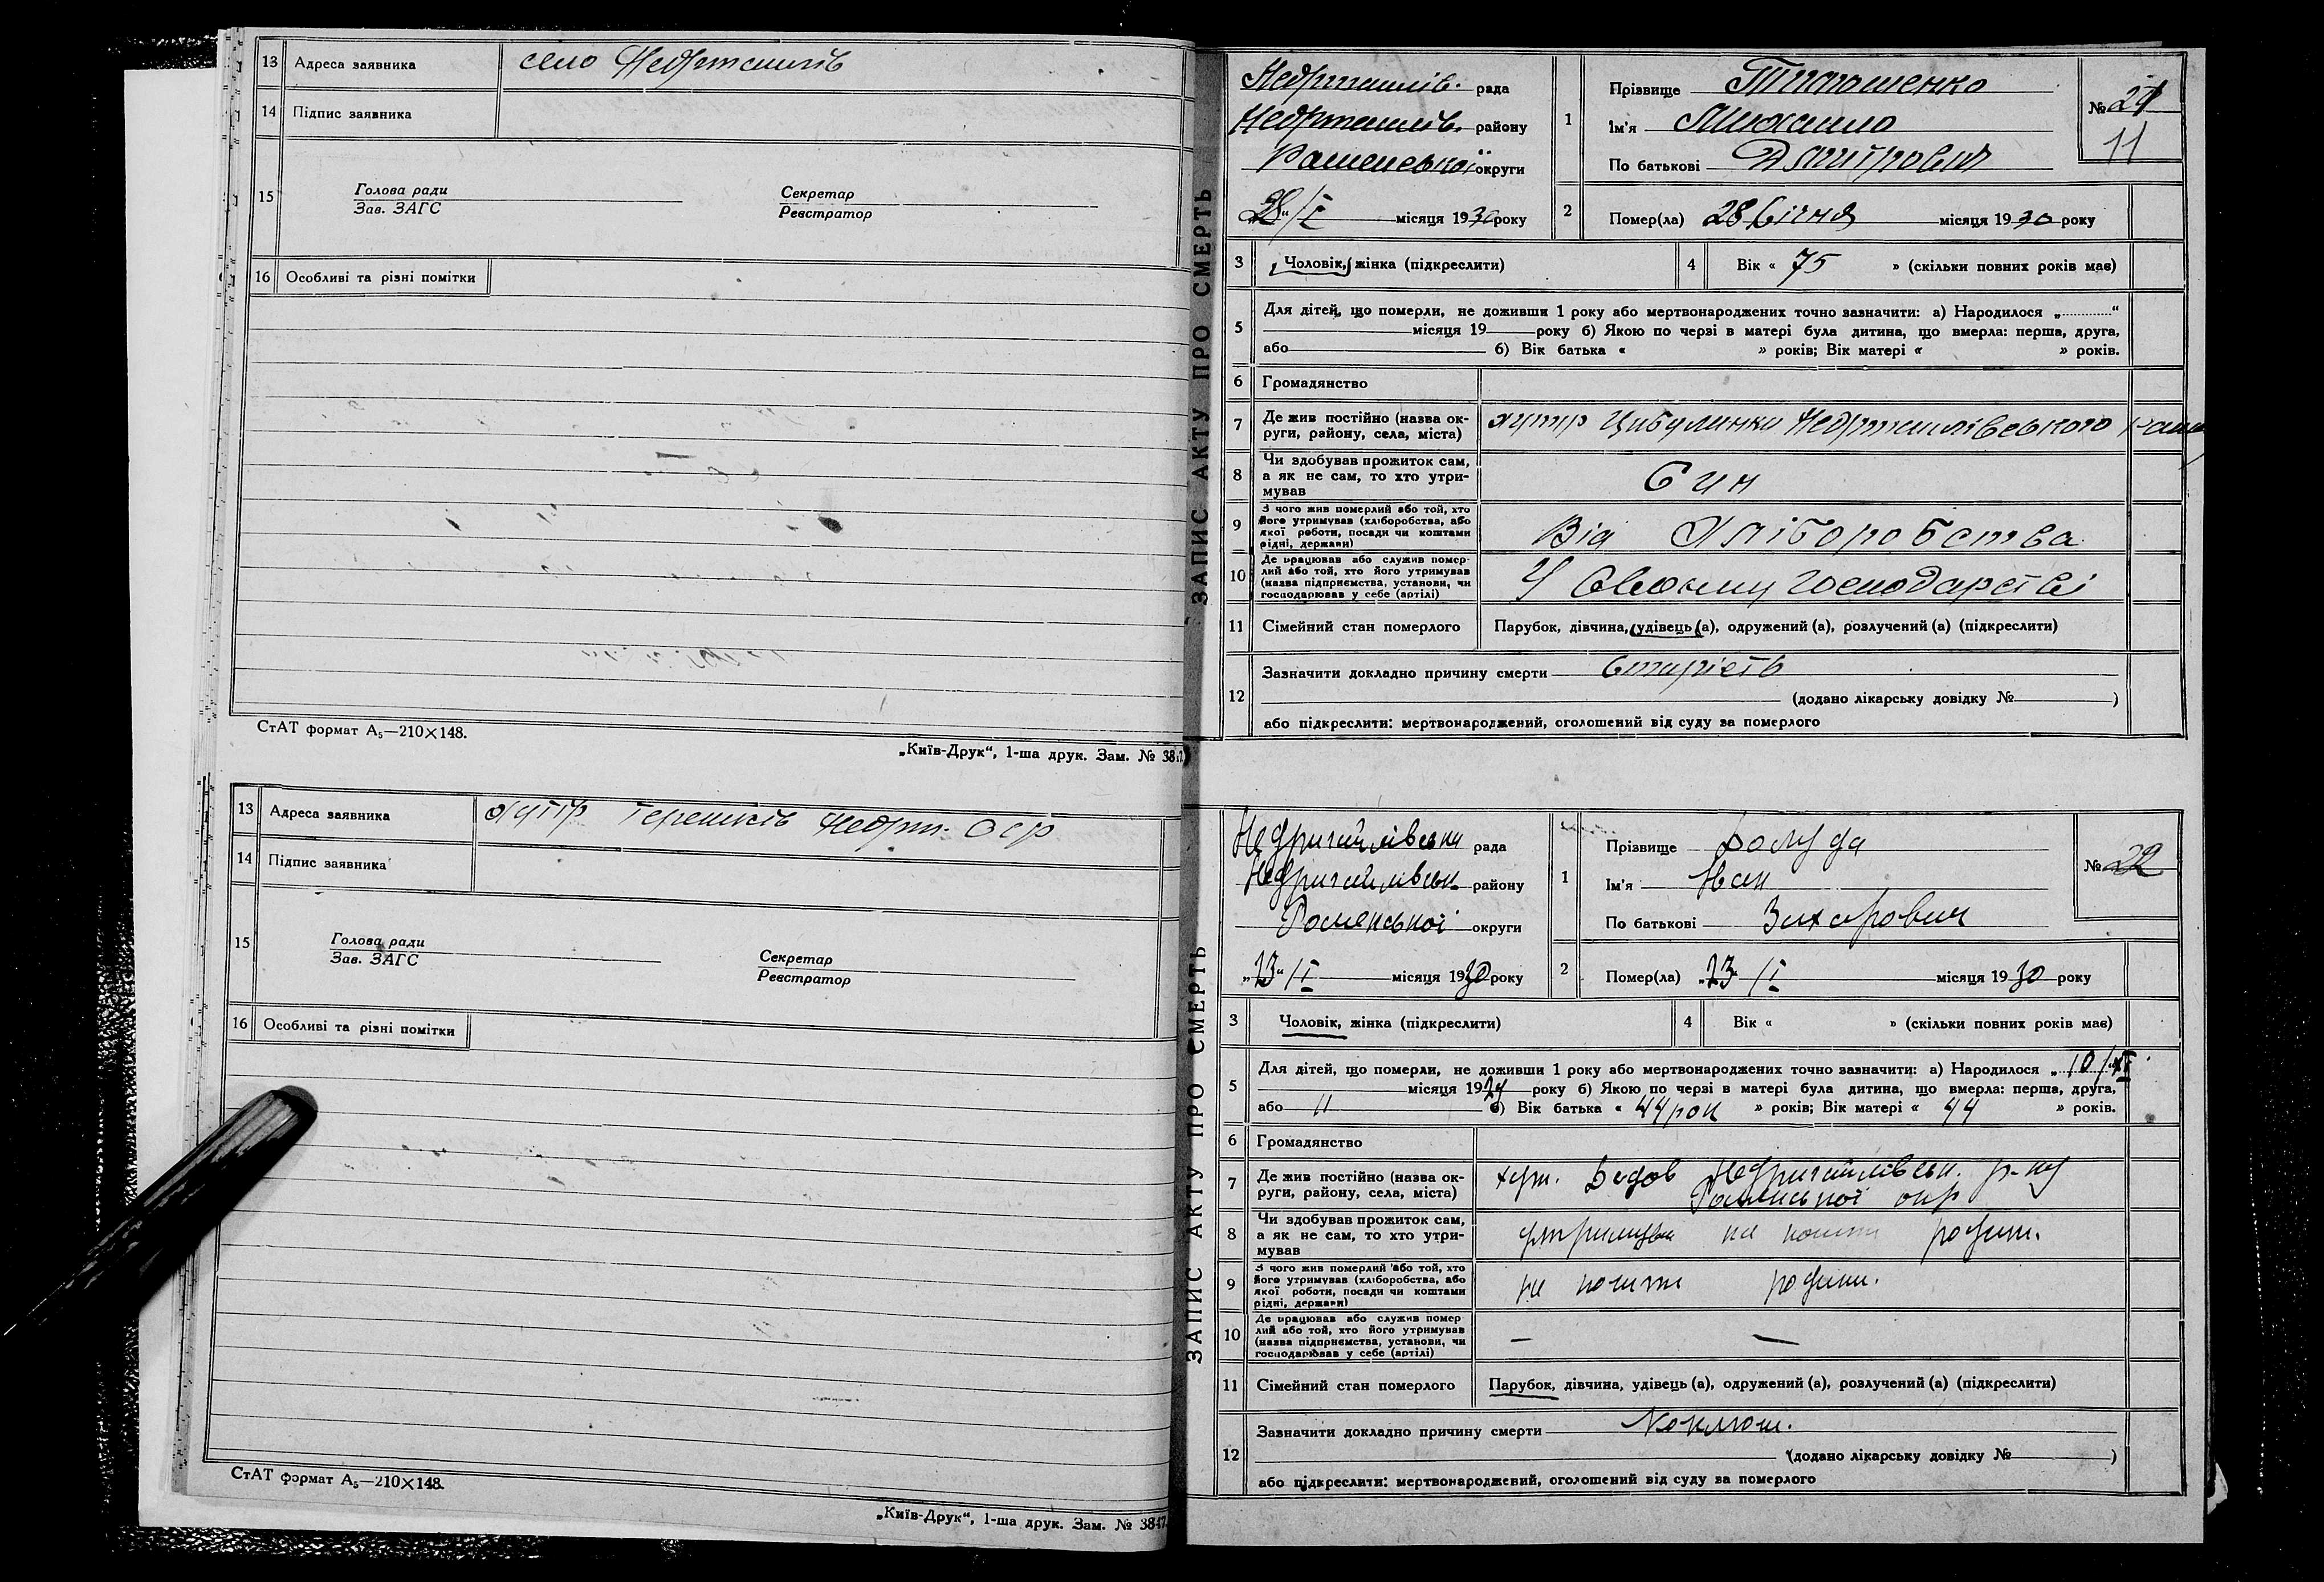 13 Адреса заявника село Недригайлів
14 Підпис заявника
15 Голова ради
Зав. ЗАГС
Секретар
Реєстратор
16 Особливі та різні помітки
СтАТ формат А₅—210×148.
„Київ-Друк“, 1-ша друк. Зам. № 3847.
13 Адреса заявника хутір Недриг.
14 Підпис заявника
15 Голова ради
Зав. ЗАГС
Секретар
Реєстратор
16 Особливі та різні помітки
СтАТ формат А₅—210×148.
„Київ-Друк“, 1-ша друк. Зам. № 3847.
ЗАПИС АКТУ ПРО СМЕРТЬ
Недригайлів. рада
Недригайлів. району
Роменської округи
„28“ /I місяця 1930 року
1 Прізвище Тимошенко
Ім'я Михайло
По батькові Дмитрович
№ 21
11
2 Помер(ла) 28 Січня місяця 1930 року
3 Чоловік, жінка (підкреслити)
4 Вік « 75 » (скільки повних років має)
5 Для дітей, що померли, не доживши 1 року або мертвонароджених точно зазначити: а) Народилося „............“
місяця 19 року б) Якою по черзі в матері була дитина, що вмерла: перша, друга,
або б) Вік батька « » років; Вік матері « » років.
6 Громадянство
7 Де жив постійно (назва ок-
руги, району, села, міста) хутір Цибулинки Недригайлівського
8 Чи здобував прожиток сам,
а як не сам, то хто утри-
мував Син
9 З чого жив померлий або той, хто
його утримував (хліборобства, або
якої роботи, посади чи коштами
рідні, держави) Від Хліборобства
10 Де працював або служив помер-
лий або той, хто його утримував
(назва підприємства, установи, чи
господарював у себе (артілі) У Своєму господарстві
11 Сімейний стан померлого Парубок, дівчина, удівець (а), одружений (а), розлучений (а) (підкреслити)
12 Зазначити докладно причину смерти Старість
(додано лікарську довідку № )
або підкреслити: мертвонароджений, оголошений від суду за померлого
ЗАПИС АКТУ ПРО СМЕРТЬ
Недригайлівська рада
Недригайлівськ. району
Роменської округи
„23“ /I місяця 1930 року
1 Прізвище
Ім'я Іван
По батькові Захарович
№ 22
2 Помер(ла) „23“ /I місяця 1930 року
3 Чоловік, жінка (підкреслити)
4 Вік « » (скільки повних років має)
5 Для дітей, що померли, не доживши 1 року або мертвонароджених точно зазначити: а) Народилося „ 10/XI
місяця 1929 року б) Якою по черзі в матері була дитина, що вмерла: перша, друга,
або 11 б) Вік батька « 44 рок » років; Вік матері « 44 » років.
6 Громадянство
7 Де жив постійно (назва ок-
руги, району, села, міста) хут. Недригайлівськ. р-ну
Роменської окр
8 Чи здобував прожиток сам,
а як не сам, то хто утри-
мував на кошти родит.
9 З чого жив померлий або той, хто
його утримував (хліборобства, або
якої роботи, посади чи коштами
рідні, держави) на кошти родини.
10 Де працював або служив помер
лий або той, хто його утримував
(назва підприємства, установи, чи
господарював у себе (артілі) — —
11 Сімейний стан померлого Парубок, дівчина, удівець (а), одружений (а), розлучений (а) (підкреслити)
12 Зазначити докладно причину смерти Коклюш.
(додано лікарську довідку № )
або підкреслити: мертвонароджений, оголошений від суду за померлого